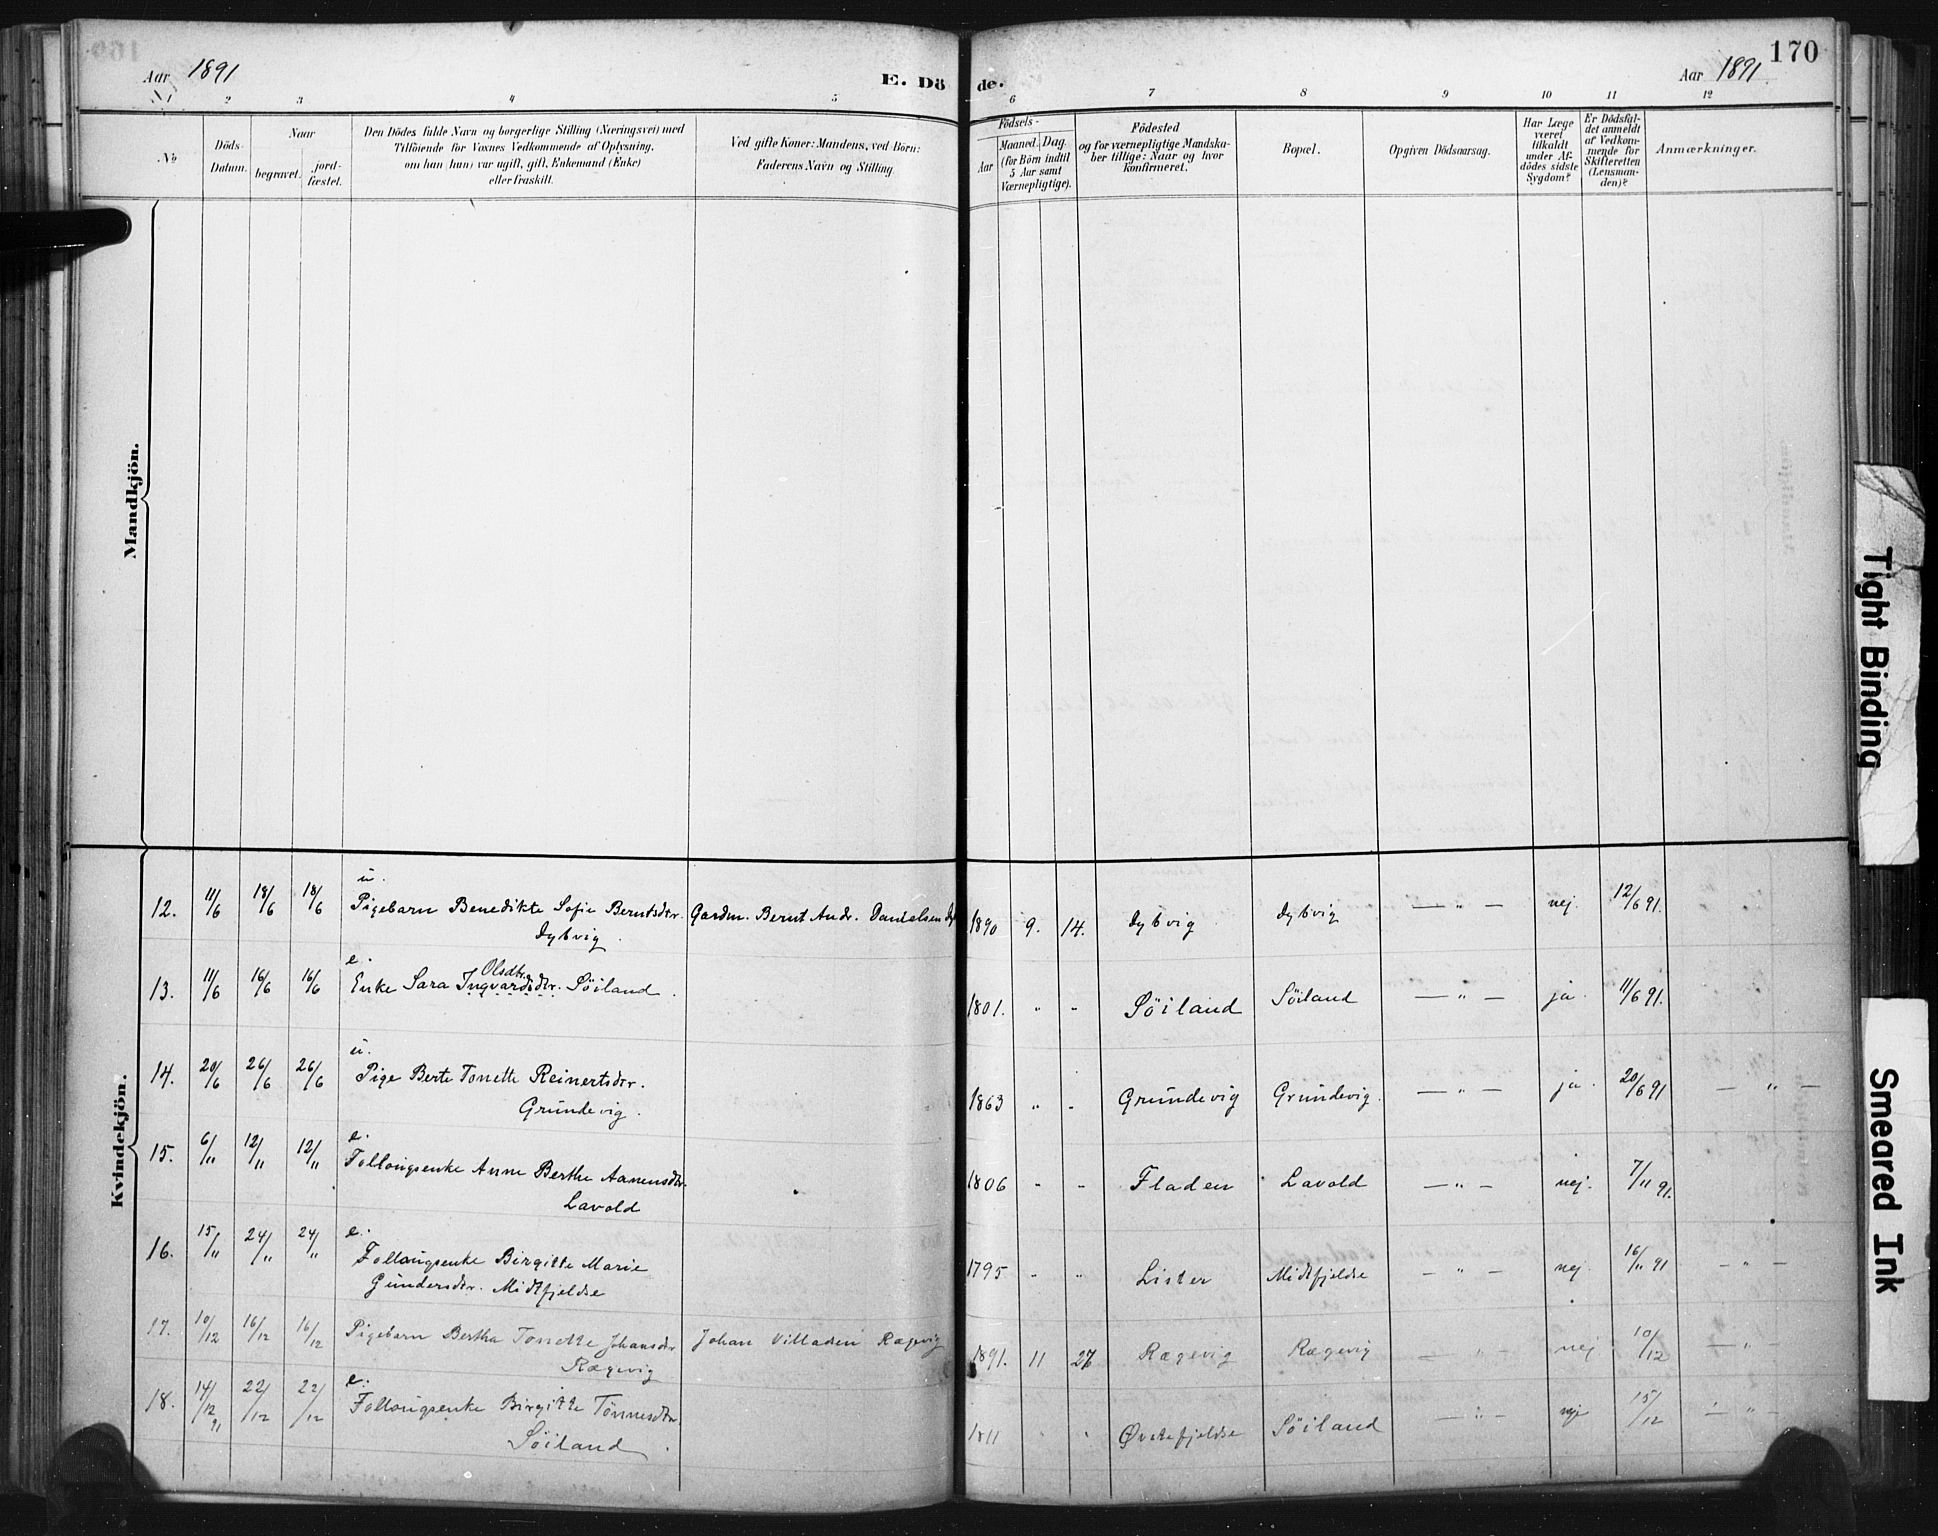 Aar 1891
E. Dö de.
Aar 1891
170
1 2 3 4 5 6 7 8 9 10 11 12
No
Döds-
Datum.
Naar
begravet.
jord-
fæstet.
Den Dödes fulde Navn og borgerlige Stilling (Næringsvei) med
Tilföiende for Voxnes Vedkommende af Oplysning,
om han (hun) var ugift, gift, Enkemand (Enke)
eller fraskilt.
Ved gifte Koner: Mandens, ved Börn:
Faderens Navn og Stilling
Födsels-
Aar
Maaned. Dag.
(for Börn indtil
5 Aar samt
Værnepligtige).
Födested
og for værnepligtige Mandska-
ber tillige: Naar og hvor
konfirmeret.
Bopæl.
Opgiven Dödsaarsag.
Har Læge
været
tilkaldt
under Af-
dödes sidste
Sygdom?
Er Dödsfal-
det anmeldt
af Vedkom-
mende for
Skifteretten
(Lensman-
den)?
Anmærkninger.
Mandkjön.
Kvindekjön.
u.
12. 11/6 18/6 18/6 Pigebarn Benedikte Sofie Berntsdtr. Gardm. Bernt Andr. Danielsen 1890 9. 14. Dybvig Dybvig — " — nej. 12/6 91.
Dybvig.
e. Olsdtr.
13. 11/6 16/6 16/6 Enke Sara Ingvardsdtr. Söiland. 1801. " " Söiland Söiland — " — ja. 11/6 91.
u.
14. 20/6 26/6 26/6 Pige Berte Tonette Reinertsdtr. 1863 " " Grundevig Grundevig. — " — ja. 20/6 91 — " —
Grundevig.
e.
15. 6/11 12/11 12/11 Follougsenke Anne Berthe Aanensdtr. 1806 " " Fladen Lavold — " — nej. 7/11 91.
Lavold
e.
16. 15/11 24/11 24/11 Follougsenke Birgitte Marie 1795 " " Lister Midtfjeldse — " — nej. 16/11 91 — " —
Gundersdtr. Midtfjeldse
17. 10/12 16/12 16/12 Pigebarn Bertha Tonette Johansdtr Johan Villadsen Rægevig 1891. 11 27 Rægevig Rægevig — " — nej 10/12 — "
Rægevig
e.
18. 14/12 91 22/12 22/12 Follougsenke Birgitte Tönnesdtr 1811 " " Øvrefjeldse Söiland — " — nej 15/12 — " —
Söiland.
Tight Binding
Smeared Ink